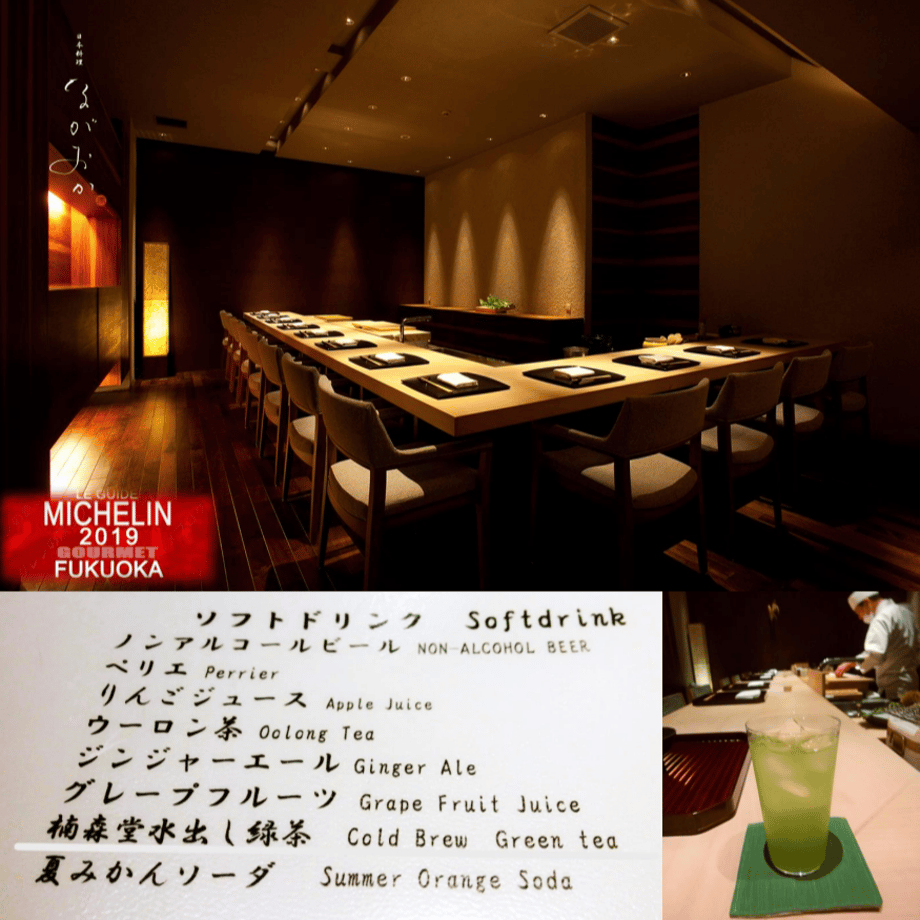 日本料理
ながおか
LE GUIDE
MICHELIN
2019
GOURMET
FUKUOKA
ソフトドリンク Softdrink
ノンアルコールビール NON-ALCOHOL BEER
ペリエ Perrier
りんごジュース Apple Juice
ウーロン茶 Oolong Tea
ジンジャーエール Ginger Ale
グレープフルーツ Grape Fruit Juice
楠森堂水出し緑茶 Cold Brew Green tea
夏みかんソーダ Summer Orange Soda